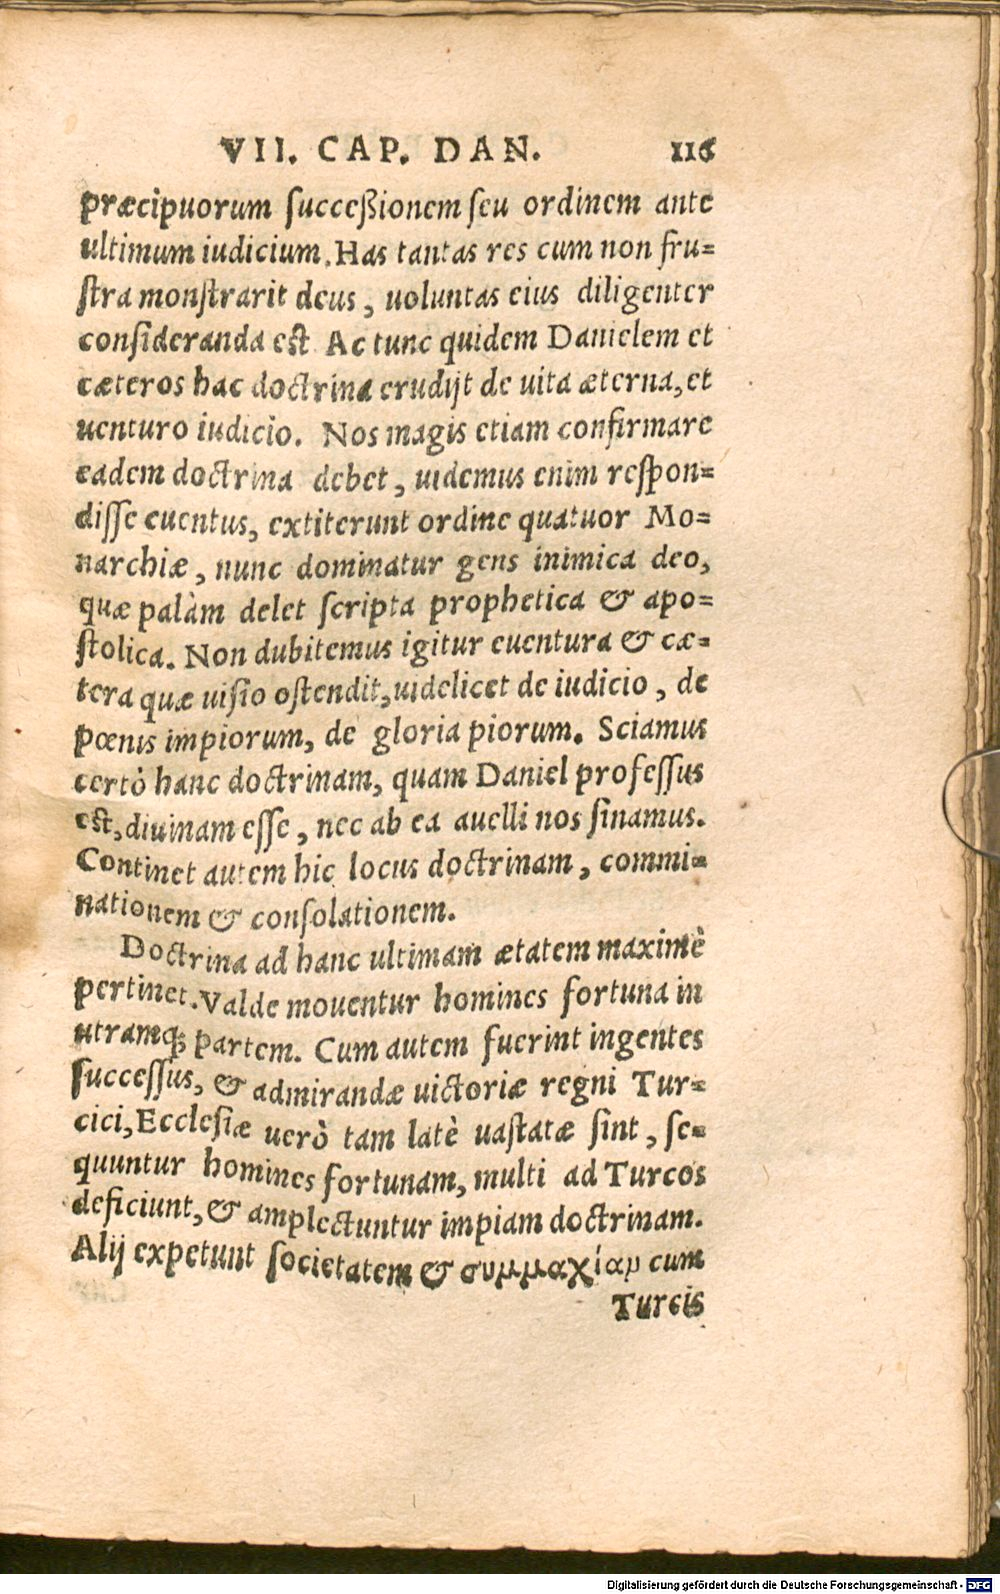 VII. CAP. DAN. 116
præcipuorum ſucceßionem ſeu ordinem ante
ultimum iudicium. Has tantas res cum non fru=
ſtra monſtrarit deus, uoluntas eius diligenter
conſideranda eſt Ac tunc quidem Danielem et
cæteros hac doctrina erudijt de uita æterna, et
uenturo iudicio. Nos magis etiam confirmare
eadem doctrina debet, uidemus enim reſpon=
diſſe euentus, extiterunt ordine quatuor Mo=
narchiæ, nunc dominatur gens inimica deo,
quæ palàm delet ſcripta prophetica & apo=
ſtolica. Non dubitemus igitur euentura & cæ=
tera quæ uiſio oſtendit, uidelicet de iudicio, de
pœnis impiorum, de gloria piorum. Sciamus
certò hanc doctrinam, quam Daniel profeſſus
eſt, diuinam eſſe, nec ab ea auelli nos ſinamus.
Continet autem hic locus doctrinam, commi=
nationem & conſolationem.
Doctrina ad hanc ultimam ætatem maximè
pertinet. Valde mouentur homines fortuna in
utramq; partem. Cum autem fuerint ingentes
ſucceſſus, & admirandæ uictoriæ regni Tur=
cici, Eccleſiæ uerò tam latè uaſtatæ ſint, ſe=
quuntur homines fortunam, multi ad Turcos
deficiunt, & amplectuntur impiam doctrinam.
Alij expetunt ſocietatem & συμμαχίαν cum
Turcis
Digitalisierung gefördert durch die Deutsche Forschungsgemeinschaft - DFG